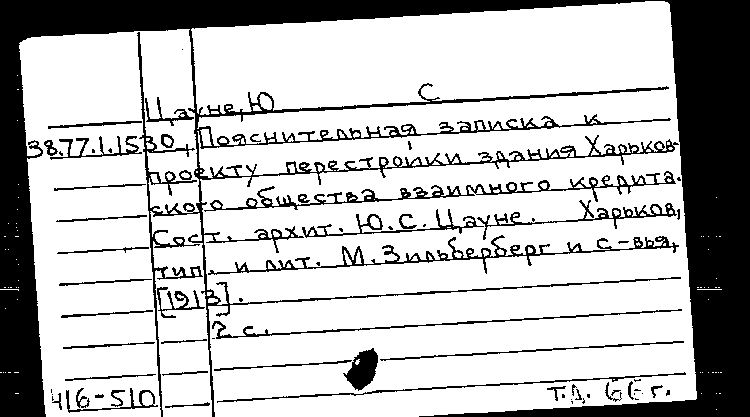 Цауне, Ю С
38.77.1.1530, Пояснительная записка к
проекту перестройки здания Харьков-
ского общества взаимного кредита.
Сост. архит. Ю.С. Цауне. Харьков,
тип. и лит. М. Зильберберг и с-вья,
[1913].
2 с.
416-510 Т.Д. 66 г.